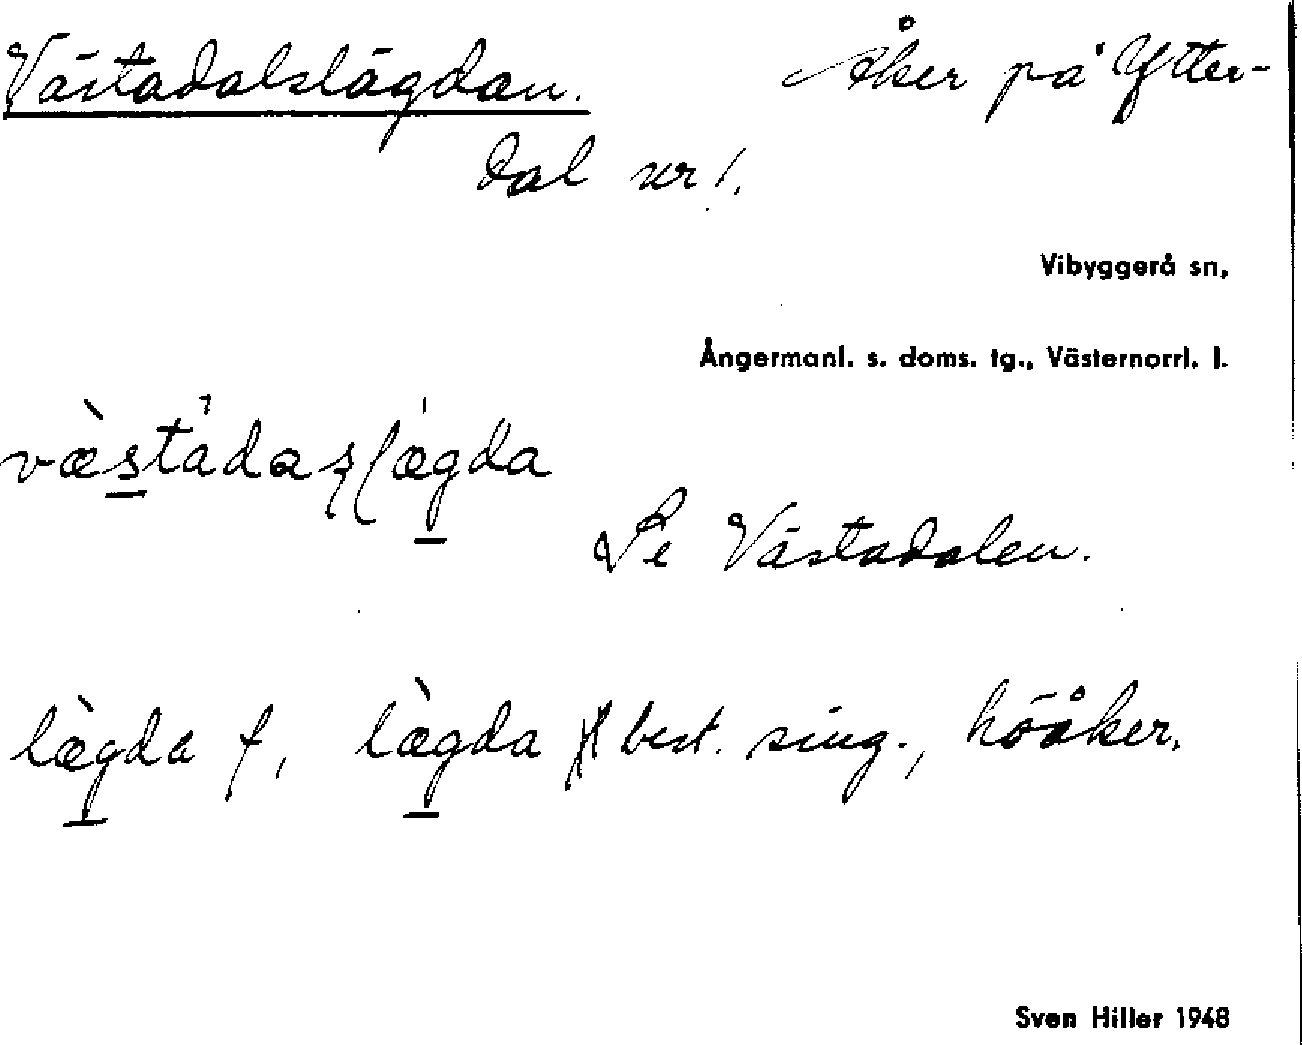 Västadalslägdan. Åker på Ytter-
dal nr 1.
Vibyggerå sn,
Ångermanl. s. doms. tg., Västernorrl. l.
Se Västadalen.
læ̀gda f, læ̀gda best. sing., höåker.
Sven Hiller 1948